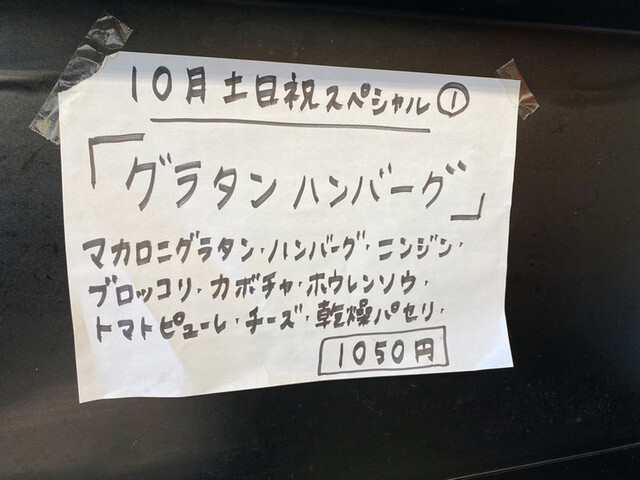 10月土日祝スペシャル①
「グラタンハンバーグ」
マカロニグラタン・ハンバーグ・ニンジン・
ブロッコリ・カボチャ・ホウレンソウ・
トマトピューレ・チーズ・乾燥パセリ・
1050円